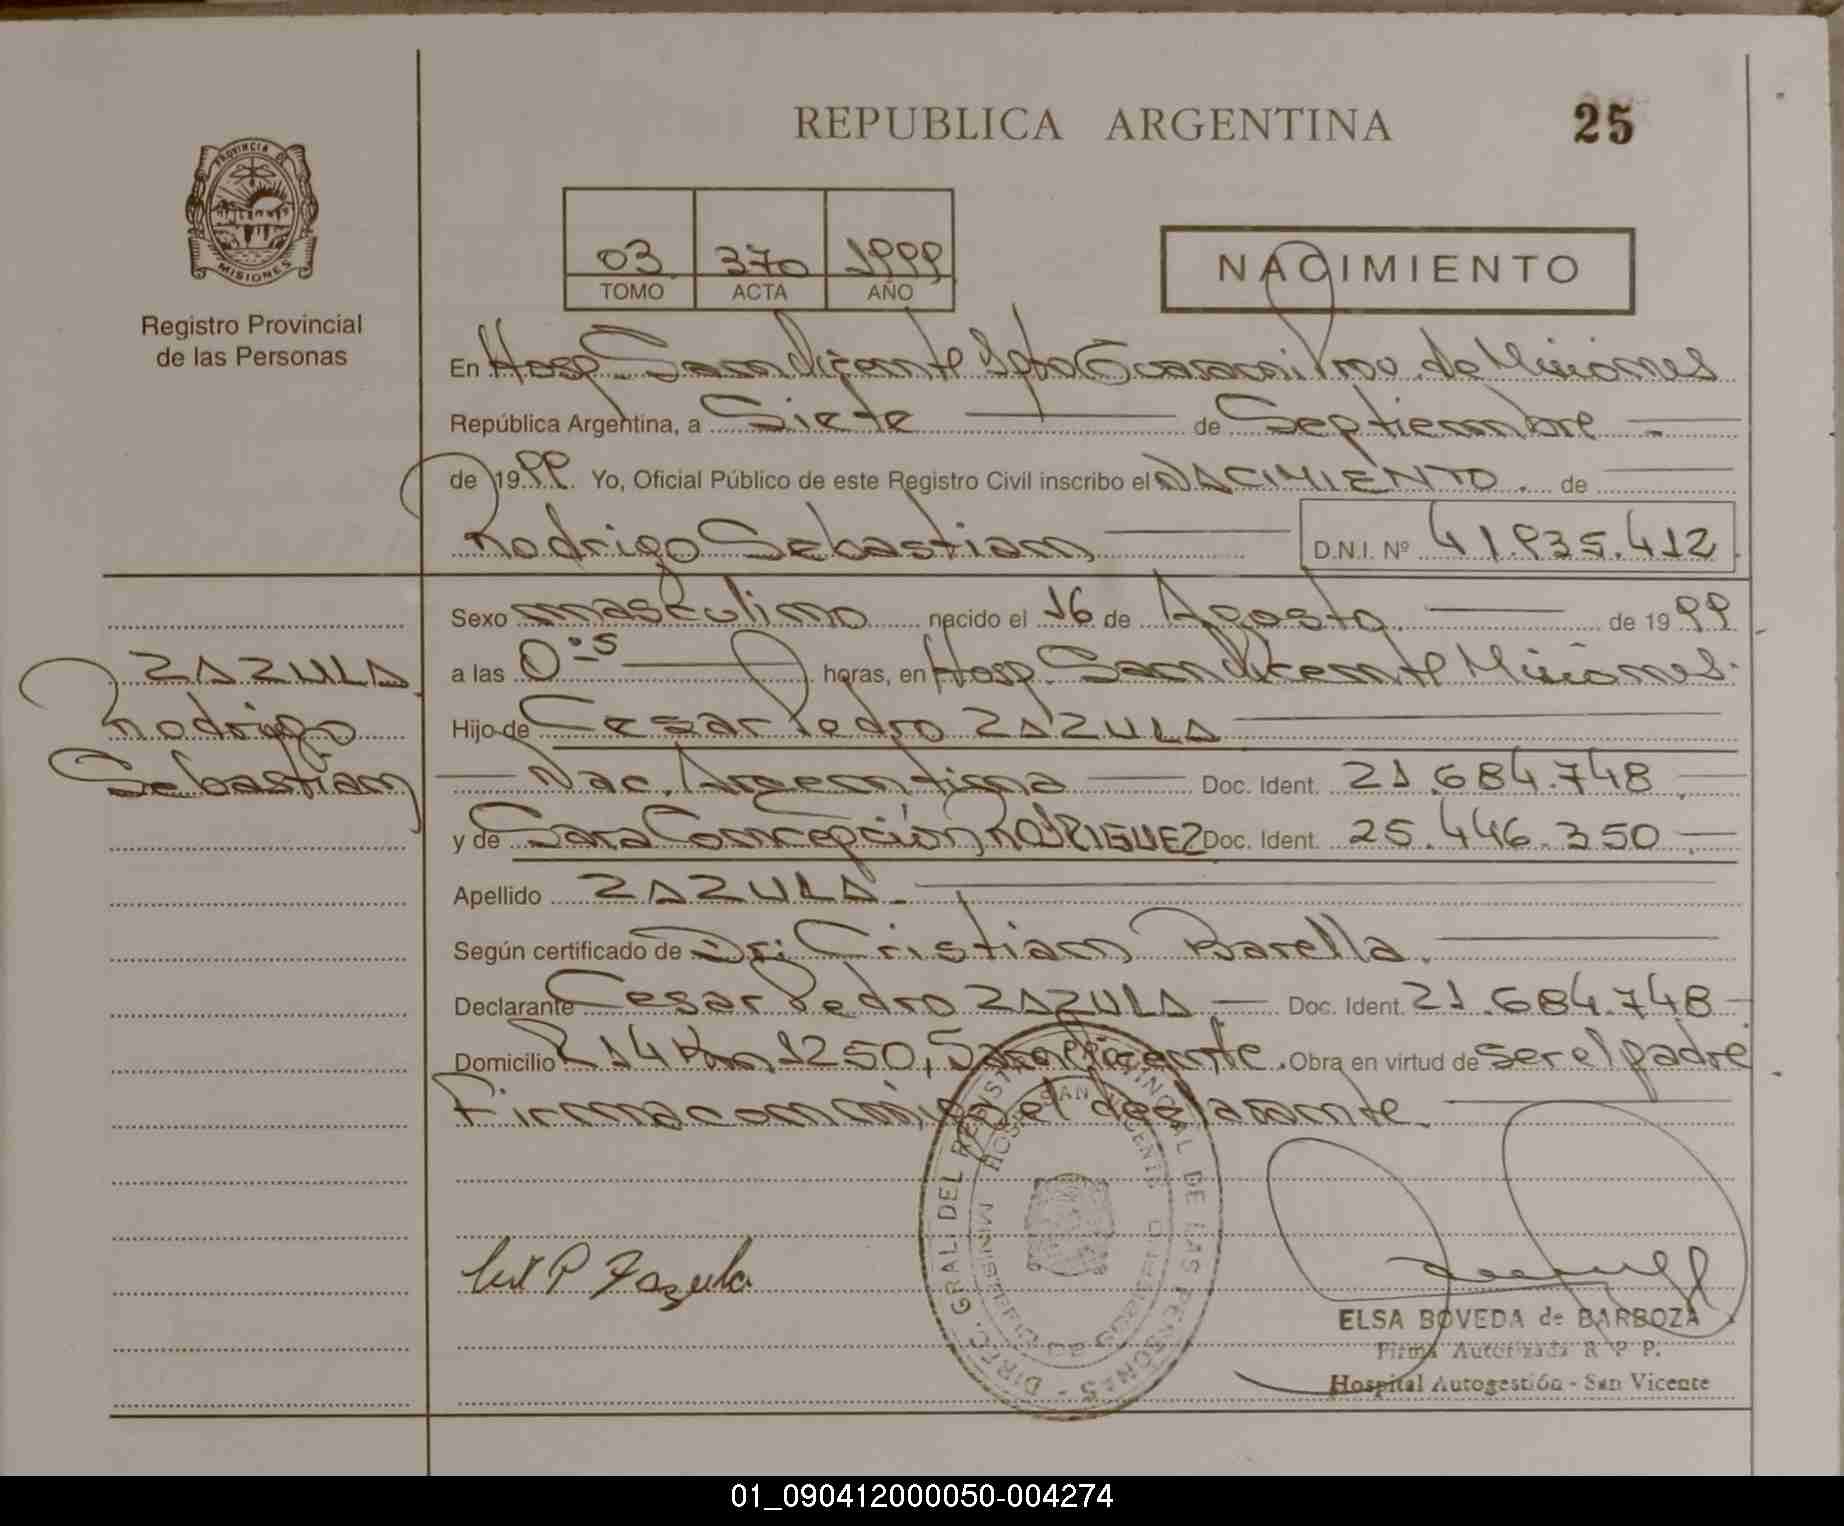 REPUBLICA ARGENTINA
25
PROVINCIA DE
MISIONES
Registro Provincial
de las Personas
03 370 1999
TOMO ACTA AÑO
NACIMIENTO
En Hosp. San Vicente Dpto Guarani Pno. de Misiones
República Argentina, a Siete de Septiembre
de 1999. Yo, Oficial Público de este Registro Civil inscribo el NACIMIENTO. de
Rodrigo Sebastian D.N.I. Nº 41.935.412
Sexo masculino nacido el 16 de Agosto. de 1999
a las 0:5 horas, en Hosp. San Vicente Misiones.
Hijo de Cesar Pedro ZAZULA
Nac. Argentina Doc. Ident. 21.684.748
y de Sara Concepción RODRIGUEZ Doc. Ident. 25.446.350
Apellido ZAZULA
Según certificado de Dr: Cristian Barella.
Declarante Cesar Pedro ZAZULA Doc. Ident. 21.684.748
Domicilio R 14 Km 1250, San Vicente. Obra en virtud de ser el padre
Firma conmigo el declarante.
ZAZULA
Rodrigo
Sebastian
DIREC. GRAL. DEL REGISTRO PROVINCIAL DE LAS PERSONAS
HOSP. SAN VICENTE
MINISTERIO DE GOBIERNO
P Zazula
ELSA BOVEDA de BARBOZA
Firma Autorizada R P P.
Hospital Autogestión - San Vicente
01_090412000050-004274